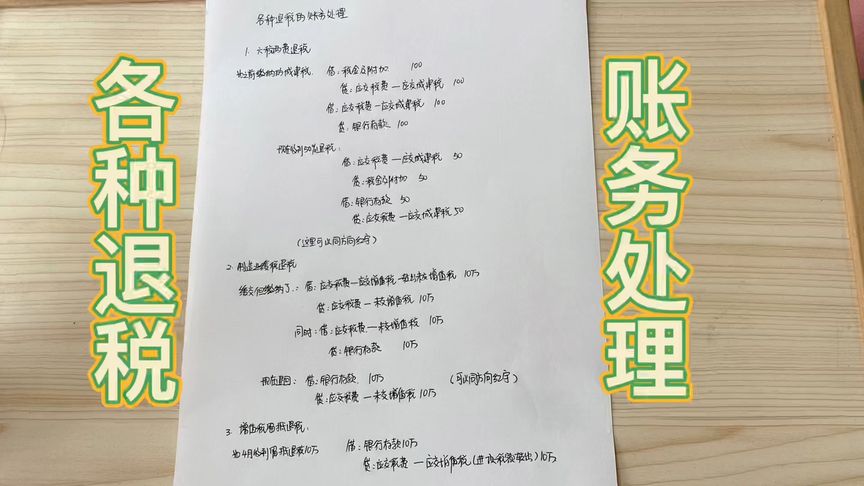 各种退税
账务处理
各种退税的账务处理
1. 六税两费退税
如之前缴纳的城建税. 借:税金及附加 100
贷:应交税费—应交城建税 100
借:应交税费—应交城建税 100
贷:银行存款 100
现在收到50元退税:
借:应交税费—应交城建税 50
贷:税金及附加 50
借:银行存款 50
贷:应交税费—应交城建税 50
(这里可以同方向红字)
2. 制造业缓税退税
缓交但缴纳了: 借:应交税费—应交增值税—转出未交增值税 10万
贷:应交税费—未交增值税 10万
同时:借:应交税费—未交增值税 10万
贷:银行存款 10万
现在退回: 借:银行存款 10万 (可以同方向红字)
贷:应交税费—未交增值税 10万
3. 增值税留抵退税:
如4月收到留抵退税10万 借:银行存款10万
贷:应交税费—应交增值税(进项税额转出)10万